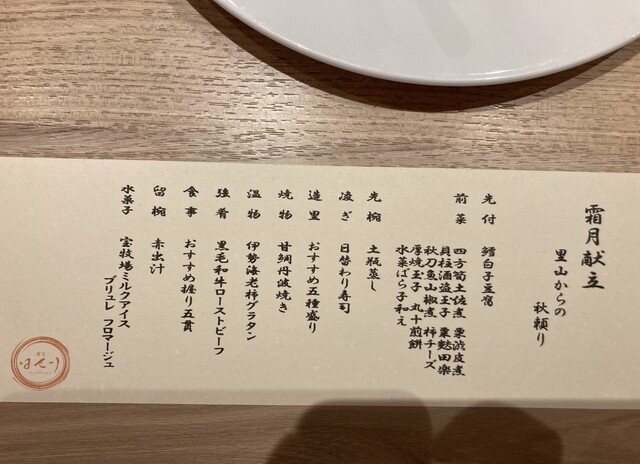 霜月献立
里山からの
秋頼り
先付 鱈白子豆腐
前菜 四方筍土佐煮 栗渋皮煮
貝柱酒盗玉子 粟麩田楽
秋刀魚山椒煮 柿チーズ
厚焼玉子 丸十煎餅
水菜ばら子和え
先椀 土瓶蒸し
凌ぎ 日替わり寿司
造里 おすすめ五種盛り
焼物 甘鯛丹波焼き
温物 伊勢海老柿グラタン
強肴 黒毛和牛ローストビーフ
食事 おすすめ握り五貫
留椀 赤出汁
水菓子 宝牧場ミルクアイス
ブリュレ フロマージュ